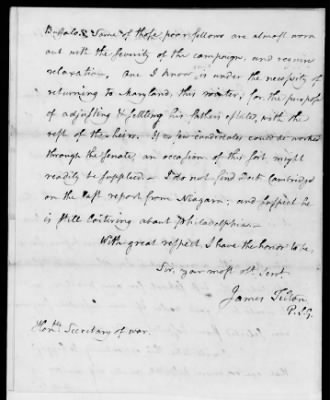 Buffalo. Some of those poor fellows are almost worn
out with the severity of the campaign, and require
relaxation. One I know is under the necessity of
returning to Maryland, this winter, for the purpose
of adjusting & settling his fathers estates, with the
rest of the heirs. If new candidates could be worked
through the Senate, an occasion of this sort might
readily be supplied. I do not find Doct. Cambridge
on the last report from Niagara; and suspect he
is still loitering about Philadelphia.
With great respect I have the honor to be,
Sir, your most obt. Servt.
James Tilton
P. S. G.
Honble. Secretary of war.